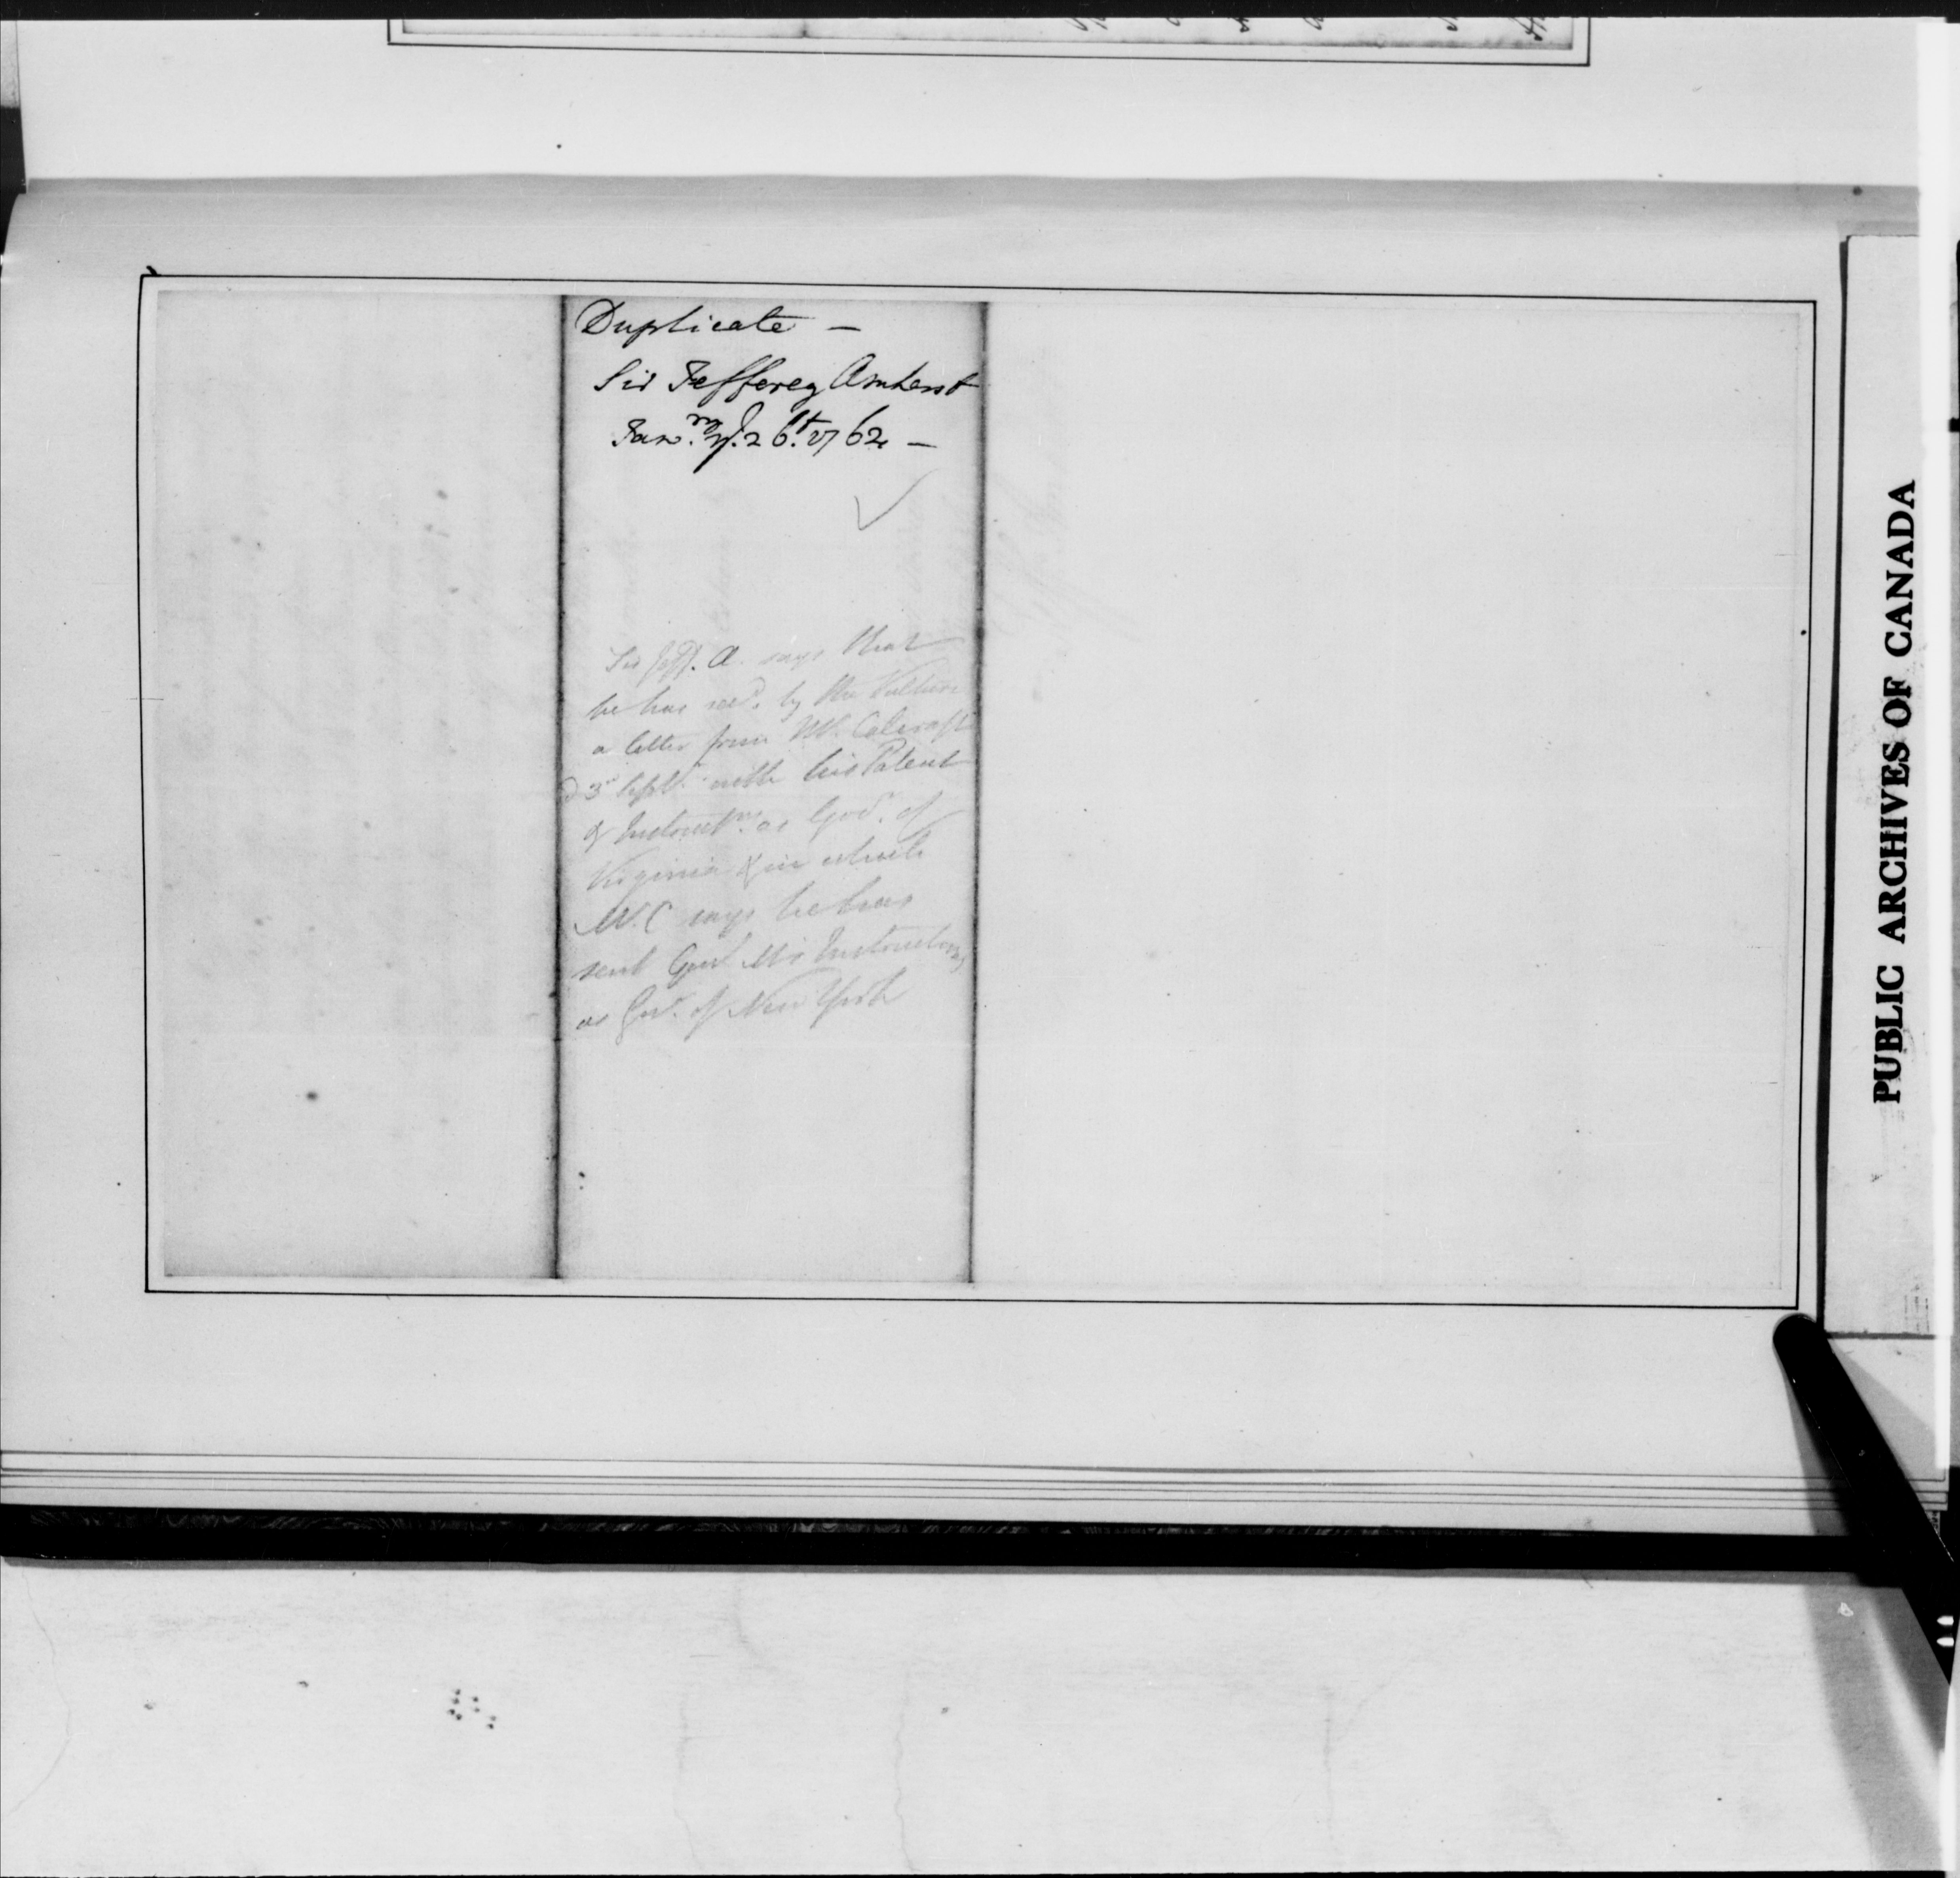 Duplicate —
Sir Jefferey Amherst
Jan.ry 26.t 1762 —
Sir Jeff. A. says that
he has recd. by the Vulture
a letter from Mr. Calcraft
d 3rd Septr. with his Patent
& Instructns. as Govr. of
Virginia & in which
Mr. C says he has
sent Genl M's Instructions
as Govr. of New York
PUBLIC ARCHIVES OF CANADA